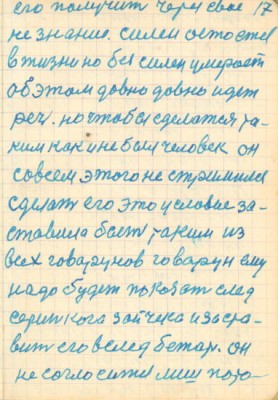 его получит через свое 17
не знание. силен остостся
в жизни но без силен умерает
об этом довно довно идет
реч. но чтобы сделатся та-
ким как и не был человек он
совсем этого не стримился
сделат его это условие за-
ставила быт таким из
всех говарунов говарун ему
надо будет показат след
серинкога зайчека и застa-
вит его вслед бежат. он
не согласится лиш пото-